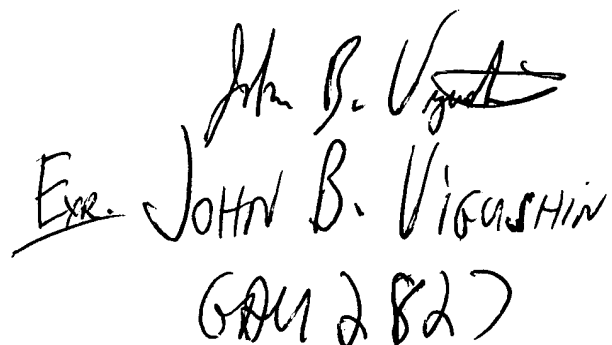 John B. Vigushin
Exr. JOHN B. VIGUSHIN
GAU 2827